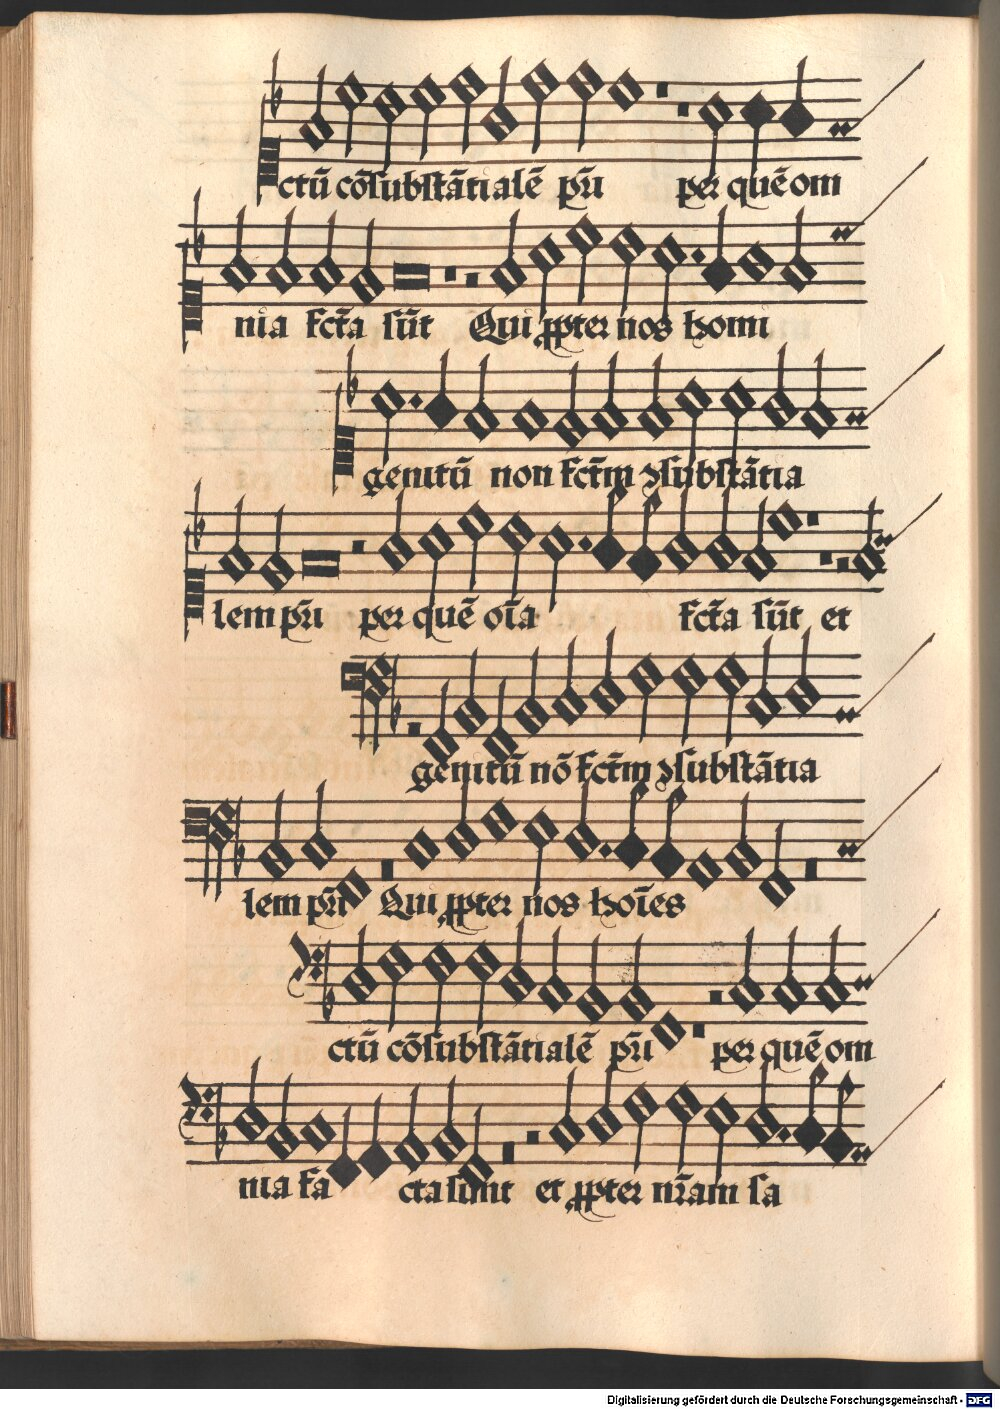 ctū cōsubstātialē pr̄i per quē om
nia fct̄a sūt Qui ꝓpter nos homi
genitū non fct̄m ꝯsubstātia
lem pr̄i per quē oīa fct̄a sūt et
genitū nō fct̄m ꝯsubstātia
lem pr̄i Qui ꝓpter nos hoīes
ctū cōsubstātialē pr̄i per quē om
nia fa cta sunt et ꝓpter nr̄am sa
Digitalisierung gefördert durch die Deutsche Forschungsgemeinschaft - DFG